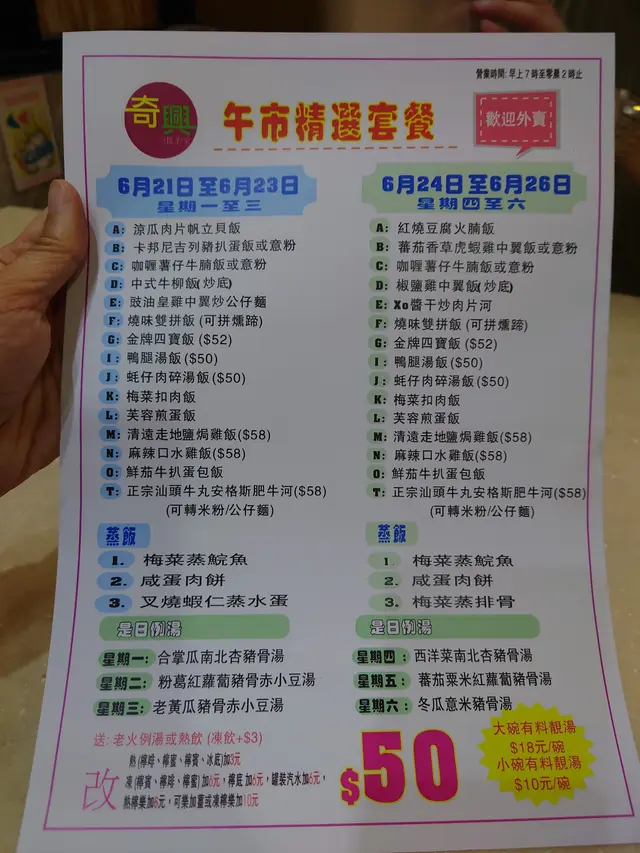 營業時間:早上7時至零晨2時止
奇興
午市精選套餐
歡迎外賣
6月21日至6月23日
星期一至三
A: 涼瓜肉片帆立貝飯
B: 卡邦尼吉列豬扒蛋飯或意粉
C: 咖喱薯仔牛腩飯或意粉
D: 中式牛柳飯(炒底)
E: 豉油皇雞中翼炒公仔麵
F: 燒味雙拼飯 (可拼燻蹄)
G: 金牌四寶飯 ($52)
I: 鴨腿湯飯 ($50)
J: 蚝仔肉碎湯飯 ($50)
K: 梅菜扣肉飯
L: 芙容煎蛋飯
M: 清遠走地鹽焗雞飯($58)
N: 麻辣口水雞飯($58)
O: 鮮茄牛扒蛋包飯
T: 正宗汕頭牛丸安格斯肥牛河($58)
(可轉米粉/公仔麵)
蒸飯
1. 梅菜蒸鯇魚
2. 咸蛋肉餅
3. 叉燒蝦仁蒸水蛋
是日例湯
星期一: 合掌瓜南北杏豬骨湯
星期二: 粉葛紅蘿蔔豬骨赤小豆湯
星期三: 老黃瓜豬骨赤小豆湯
6月24日至6月26日
星期四至六
A: 紅燒豆腐火腩飯
B: 蕃茄香草虎蝦雞中翼飯或意粉
C: 咖喱薯仔牛腩飯或意粉
D: 椒鹽雞中翼飯(炒底)
E: Xo醬干炒肉片河
F: 燒味雙拼飯 (可拼燻蹄)
G: 金牌四寶飯 ($52)
I: 鴨腿湯飯 ($50)
J: 蚝仔肉碎湯飯 ($50)
K: 梅菜扣肉飯
L: 芙容煎蛋飯
M: 清遠走地鹽焗雞飯($58)
N: 麻辣口水雞飯($58)
O: 鮮茄牛扒蛋包飯
T: 正宗汕頭牛丸安格斯肥牛河($58)
(可轉米粉/公仔麵)
蒸飯
1. 梅菜蒸鯇魚
2. 咸蛋肉餅
3. 梅菜蒸排骨
是日例湯
星期四: 西洋菜南北杏豬骨湯
星期五: 蕃茄粟米紅蘿蔔豬骨湯
星期六: 冬瓜意米豬骨湯
送: 老火例湯或熱飲 (凍飲+$3)
改
熱(檸啡、檸蜜、檸賓、冰底)加3元
凍(檸賓、檸啡、檸蜜)加6元，檸底加6元，罐裝汽水加6元，
熱檸樂加6元，可樂加薑或凍檸樂加10元
$50
大碗有料靚湯
$18元/碗
小碗有料靚湯
$10元/碗